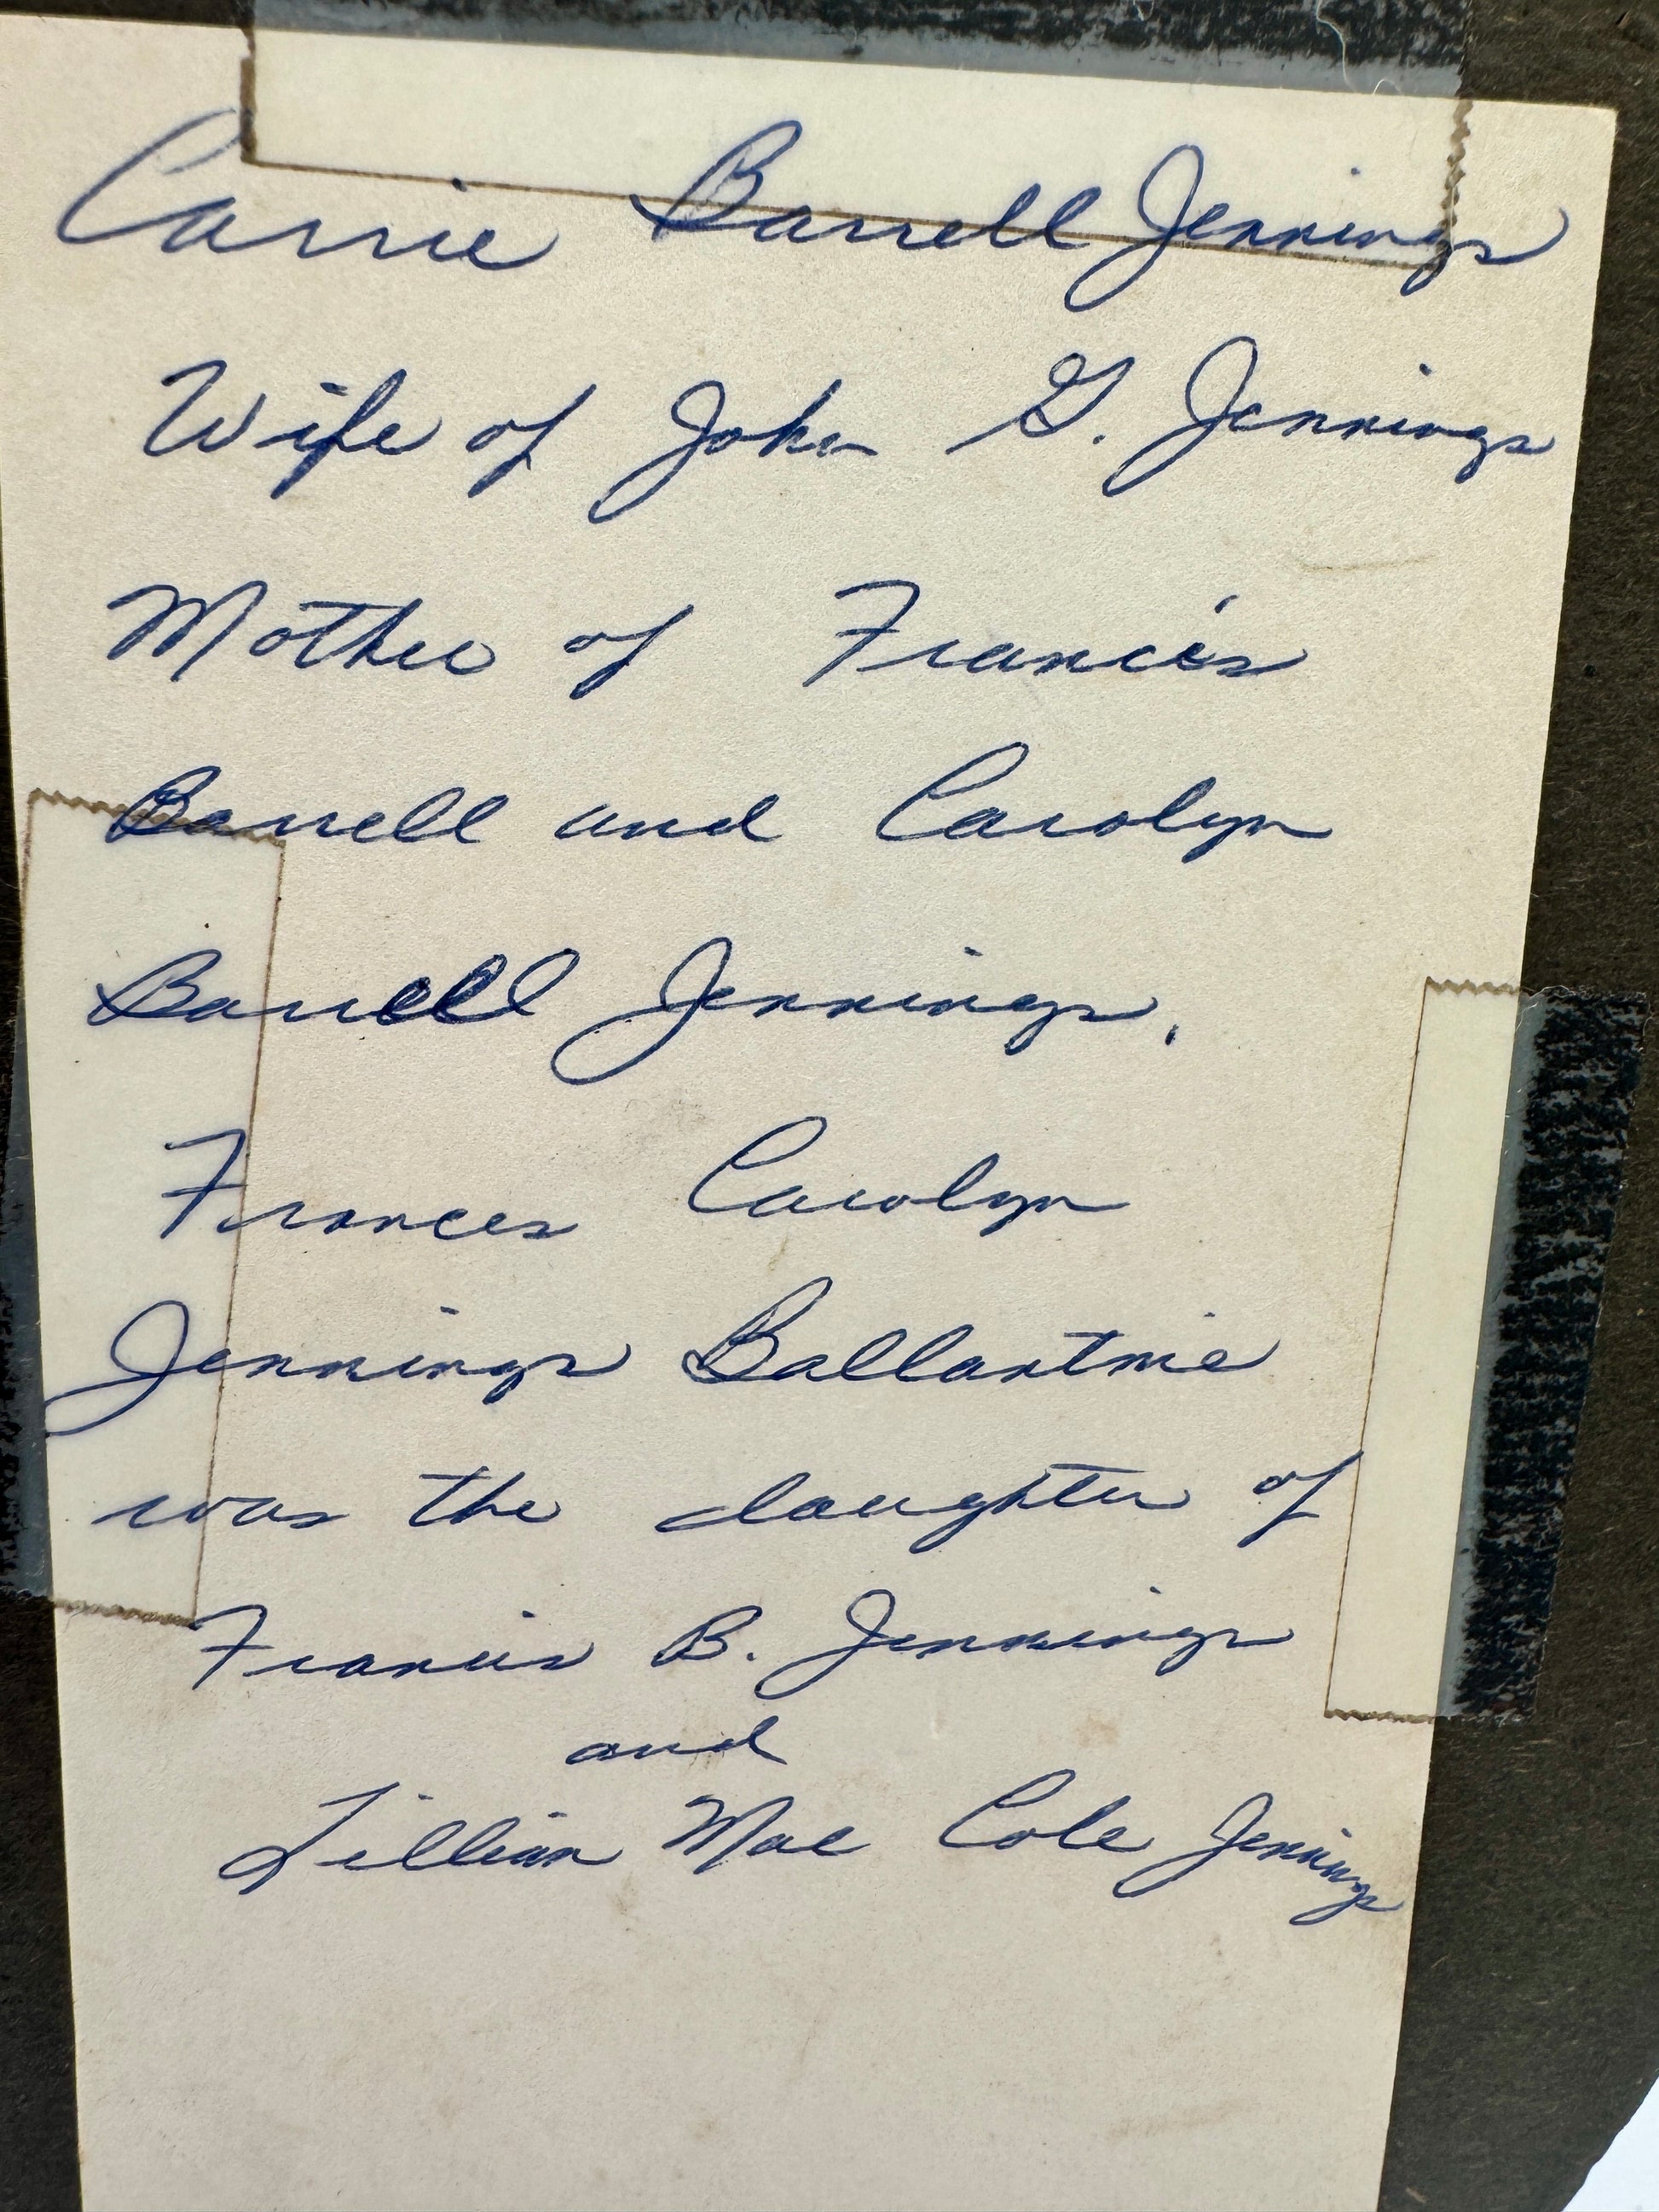 Carrie Barrell Jennings
Wife of John G. Jennings
Mother of Francis
Barrell and Carolyn
Barrell Jennings.
Frances Carolyn
Jennings Ballantine
was the daughter of
Francis B. Jennings
and
Lillian Mae Cole Jennings